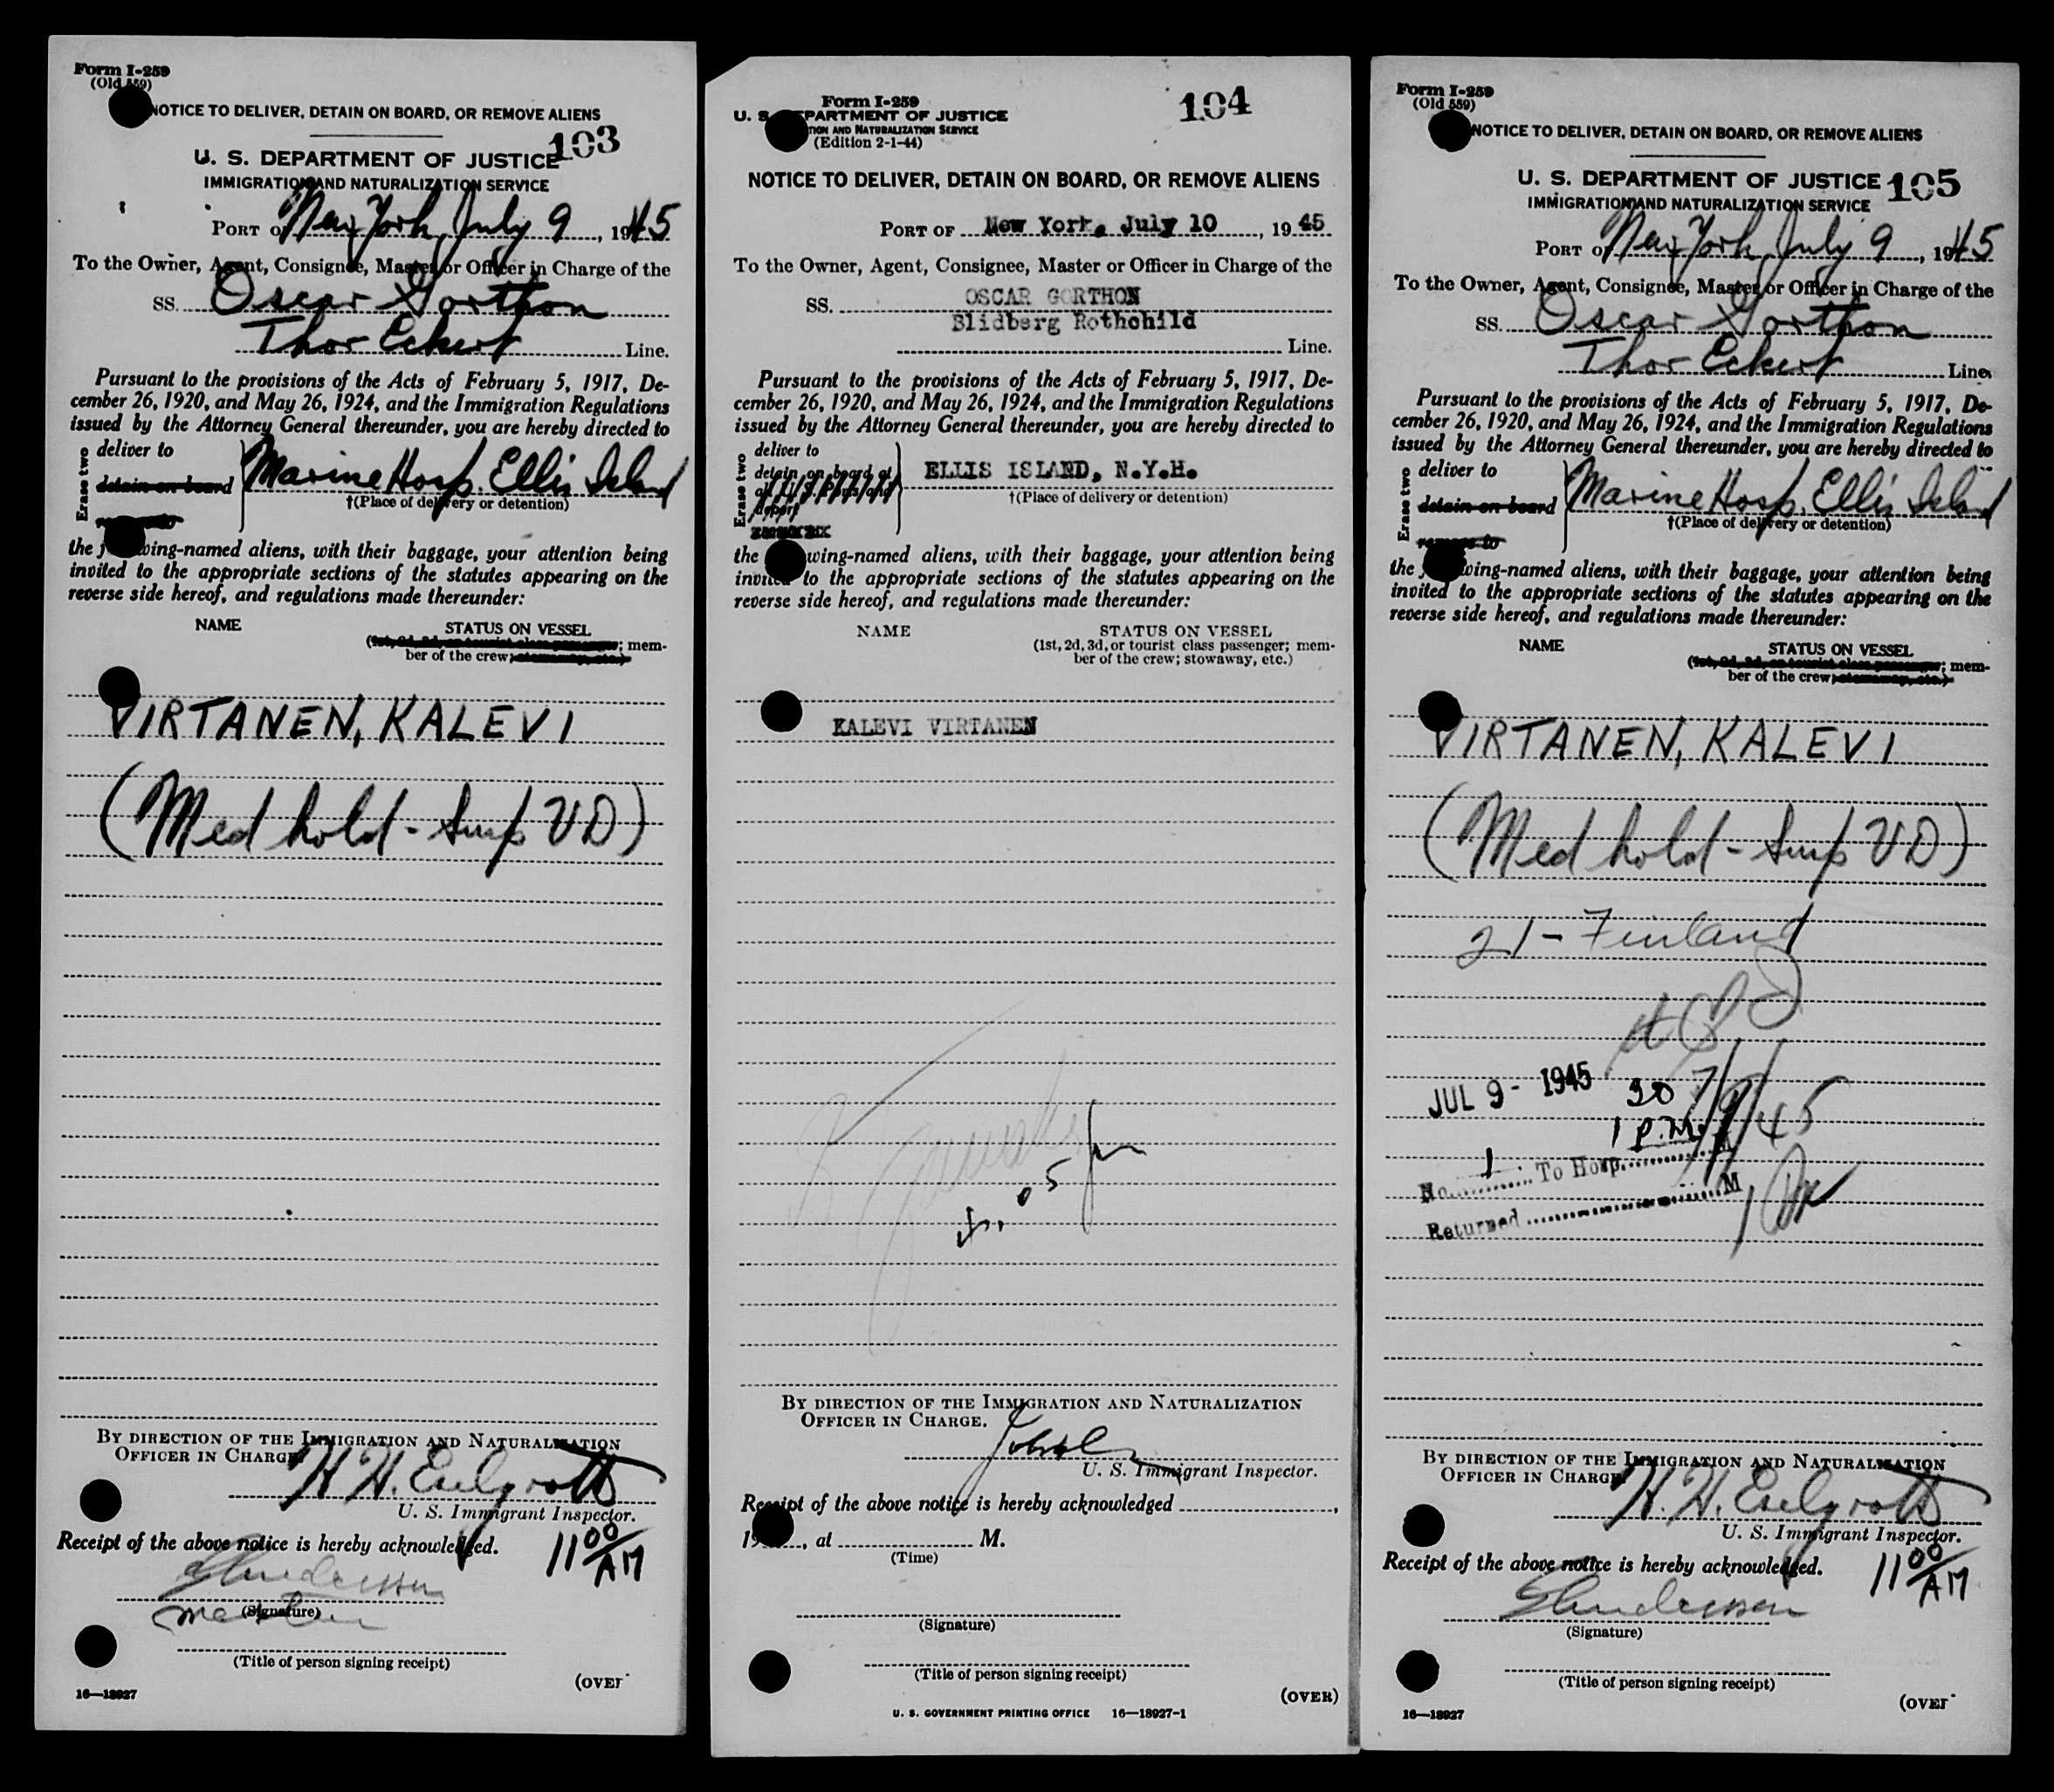 Form I-259
(Old 559)
NOTICE TO DELIVER, DETAIN ON BOARD, OR REMOVE ALIENS
103
U. S. DEPARTMENT OF JUSTICE
IMMIGRATION AND NATURALIZATION SERVICE
PORT OF New York, July 9, 1945
To the Owner, Agent, Consignee, Master or Officer in Charge of the
SS. Oscar Gorthon
Thor Eckert Line.
Pursuant to the provisions of the Acts of February 5, 1917, De-
cember 26, 1920, and May 26, 1924, and the Immigration Regulations
issued by the Attorney General thereunder, you are hereby directed to
Erase two
deliver to
detain on board
Marine Hosp. Ellis Island
†(Place of delivery or detention)
the wing-named aliens, with their baggage, your attention being
invited to the appropriate sections of the statutes appearing on the
reverse side hereof, and regulations made thereunder:
NAME
STATUS ON VESSEL
(1st, 2d, 3d, or tourist class passenger; mem-
ber of the crew; stowaway, etc.)
VIRTANEN, KALEVI
(Med hold - Susp VD)
BY DIRECTION OF THE IMMIGRATION AND NATURALIZATION
OFFICER IN CHARGE
U. S. Immigrant Inspector.
Receipt of the above notice is hereby acknowledged.
11 00/AM
(Signature)
(Title of person signing receipt)
(OVER
16—18927
Form I-259
U. S. DEPARTMENT OF JUSTICE
TION AND NATURALIZATION SERVICE
(Edition 2-1-44)
104
NOTICE TO DELIVER, DETAIN ON BOARD, OR REMOVE ALIENS
PORT OF New York, July 10, 1945
To the Owner, Agent, Consignee, Master or Officer in Charge of the
SS. OSCAR GORTHON
Blidberg Rothchild
Line.
Pursuant to the provisions of the Acts of February 5, 1917, De-
cember 26, 1920, and May 26, 1924, and the Immigration Regulations
issued by the Attorney General thereunder, you are hereby directed to
Erase two
deliver to
detain on board at
ELLIS ISLAND, N.Y.H.
†(Place of delivery or detention)
the wing-named aliens, with their baggage, your attention being
invited to the appropriate sections of the statutes appearing on the
reverse side hereof, and regulations made thereunder:
NAME
STATUS ON VESSEL
(1st, 2d, 3d, or tourist class passenger; mem-
ber of the crew; stowaway, etc.)
KALEVI VIRTANEN
BY DIRECTION OF THE IMMIGRATION AND NATURALIZATION
OFFICER IN CHARGE.
U. S. Immigrant Inspector.
Receipt of the above notice is hereby acknowledged ,
19 , at M.
(Time)
(Signature)
(Title of person signing receipt)
(OVER)
U. S. GOVERNMENT PRINTING OFFICE 16—18927-1
Form I-259
(Old 559)
NOTICE TO DELIVER, DETAIN ON BOARD, OR REMOVE ALIENS
U. S. DEPARTMENT OF JUSTICE 105
IMMIGRATION AND NATURALIZATION SERVICE
PORT OF New York, July 9, 1945
To the Owner, Agent, Consignee, Master or Officer in Charge of the
SS. Oscar Gorthon
Thor Eckert Line.
Pursuant to the provisions of the Acts of February 5, 1917, De-
cember 26, 1920, and May 26, 1924, and the Immigration Regulations
issued by the Attorney General thereunder, you are hereby directed to
Erase two
deliver to
detain on board
remove to
Marine Hosp. Ellis Island
†(Place of delivery or detention)
the wing-named aliens, with their baggage, your attention being
invited to the appropriate sections of the statutes appearing on the
reverse side hereof, and regulations made thereunder:
NAME
STATUS ON VESSEL
(1st, 2d, 3d, or tourist class passenger; mem-
ber of the crew; stowaway, etc.)
VIRTANEN, KALEVI
(Med hold - Susp VD)
21 - Finland
JUL 9 - 1945
7/9/45
1 P.M.
No. 1 To Hosp. M
Returned M
BY DIRECTION OF THE IMMIGRATION AND NATURALIZATION
OFFICER IN CHARGE
U. S. Immigrant Inspector.
Receipt of the above notice is hereby acknowledged.
11 00/AM
(Signature)
(Title of person signing receipt)
(OVER
16—18927